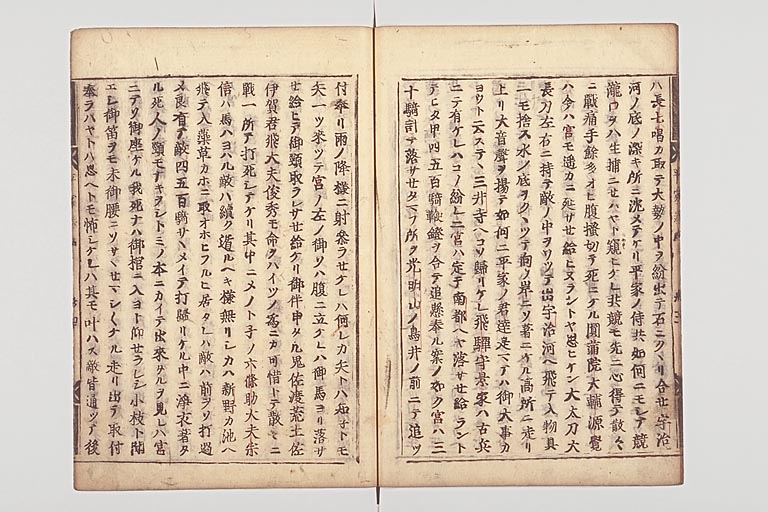 ハ長七唱カ取テ大勢ノ中ヲ紛出テ石ニクヽリ合せ宇治
河ノ底ノ深キ所ニ沈メテケリ平家ノ侍共如何ニモシテ競
瀧口ヲハ生捕ニせハヤト窺ヒケレ共競モ先ニ心得テ散々
ニ戰痛手餘多オヒ腹掻切テ死ニケル圓滿院大輔源覺
ハ今ハ宮モ遙カニ延サせ給ヒヌラントヤ思ヒケン大太刀大
長刀左右ニ持テ敵ノ中ヲワツテ出宇治河ヘ飛テ入物具
一モ捨ス水ノ底ヲクヽツテ向ノ岸ニソ着ニケル高所ニ走リ
上リ大音聲ヲ揚テ如何ニ平家ノ君達是マテハ御大事カ
ヨウト云ステヽ三井寺ヘコソ歸リケレ飛騨守景家ハ古兵
ニテ有ケレハコノ紛レニ宮ハ定テ南都ヘヤ落サせ給ラント
テヒタ甲四五百騎鞭鐙ヲ合テ追懸奉ル案ノ如ク宮ハ三
十騎計テ落サせ所ヲ光明山ノ鳥井ノ前ニテ追ツ
付奉リ雨ノ降樣ニ射參ラせケレハ何レカ矢トハ知子トモ
矢一ツ来ツテ宮ノ左ノ御ソハ腹ニ立ケレハ御馬ヨリ落サ
せ給ヒテ御頸取ラレサせ給ケリ御伴申タル鬼佐渡荒土佐
伊賀君飛大夫俊秀モ命ヲハイツノ爲ニカ可惜トテ散々ニ
戰一所テ打死シテケリ其中ニメノト子ノ六條助大夫宗
信ハ馬ハヨハル敵ハ續ク遁ルヘキ樣無リシカハ新野カ池ヘ
飛テ入藻草カホニ取オホヒフルヒ居タレハ敵ハ前ヲソ打過
ヌ良有テ敵四五百騎サヽメイテ打歸リケル中ニ淨衣着タ
ル死人ノ頸モナキヲシトミノ本ニカイテ出來タルヲ見レハ宮
ニテソ御座ケル我死ナハ御棺ニ入ヨト仰せラレシ小枝ト聞
エシ御笛ヲモ未御腰ニソサヽせマシヽケル走リ出テ取付
奉ラハヤトハ思ヘトモ怖シケレハ其モ叶ハス敵皆通ツテ後